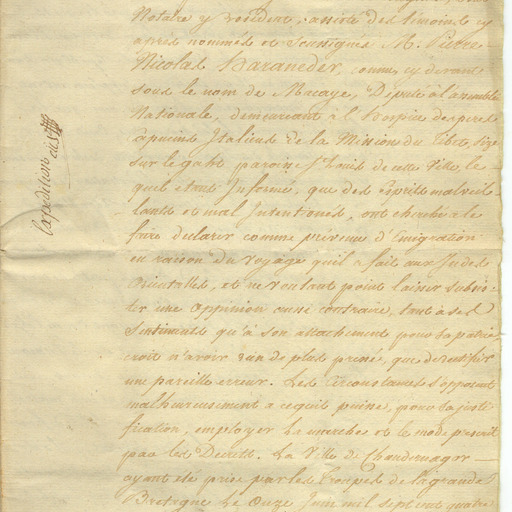 Notaire y résident, assisté des témoins cy
après nommés et soussignés M. Pierre
Nicolas Haraneder, connu cy devant
sous le nom de Macaye, Député à l'assemblée
Nationale, demeurant à l'hospice des pères
Capucins Italiens de la Mission du Tibet, size
sur le gaht paroisse St Louis de cette Ville, le
quel étant Informé, que des esprits malveil
lants et mal Intentionés, ont cherché à le
faire declarer comme prévenu d'Emigration
en raison du voyage quil a fait aux Indes
Orientalles, et ne voulant point laisser subsis
ter une oppinion aussi contraire, tant à ses
Sentiments qu'à son attachement pour sa patrie
croit n'avoir rien de plus pressé, que de rectifier
une pareille erreur. Les Circonstances s'opposent
malheureusement a cequil puisse, pour sa justi
fication, employer la marche et le mode prescrit
par les Decrets. La Ville de Chandernagor
ayant été prise par les troupes de la grande
Bretagne Le Onze Juin mil sept cent quatre
Expédition